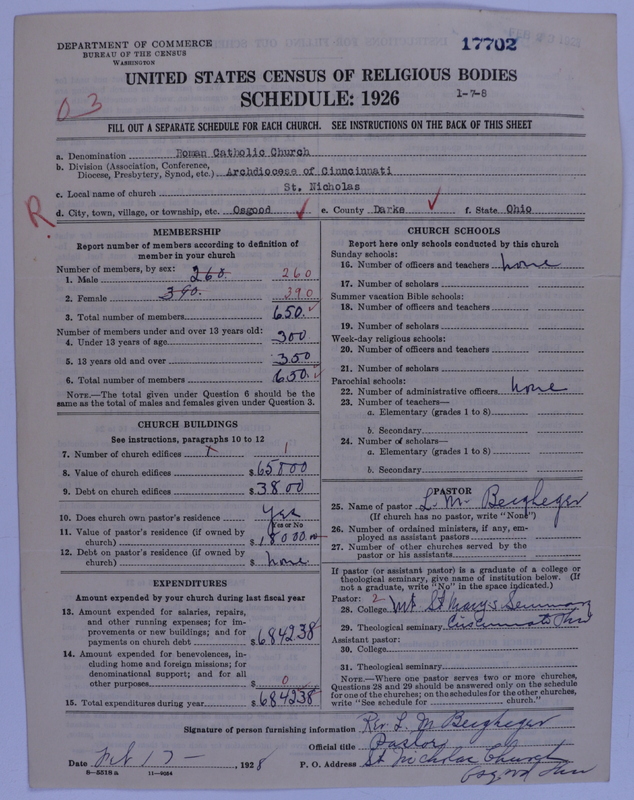 DEPARTMENT OF COMMERCE
BUREAU OF THE CENSUS
WASHINGTON
17702
UNITED STATES CENSUS OF RELIGIOUS BODIES
SCHEDULE: 1926
1-7-8
03
FILL OUT A SEPARATE SCHEDULE FOR EACH CHURCH. SEE INSTRUCTIONS ON THE BACK OF THIS SHEET
a. Denomination Roman Catholic Church
b. Division (Association, Conference, Diocese, Presbytery, Synod, etc.) Archdiocese of Cinncinnati
c. Local name of church St. Nicholas
R
d. City, town, village, or township, etc. Osgood e. County Darke f. State Ohio
MEMBERSHIP
Report number of members according to definition of
member in your church
Number of members, by sex:
1. Male 260. 260
2. Female 390. 390
3. Total number of members 650.
Number of members under and over 13 years old:
4. Under 13 years of age 300
5. 13 years old and over 350
6. Total number of members 650.
NOTE.—The total given under Question 6 should be
same as the total of males and females given under Question 3.
CHURCH BUILDINGS
See instructions, paragraphs 10 to 12
7. Number of church edifices 1 1
8. Value of church edifices $65000
9. Debt on church edifices $3800
10. Does church own pastor's residence Yes
Yes or No
11. Value of pastor's residence (if owned by
church) $18000
12. Debt on pastor's residence (if owned by
church) $ none
EXPENDITURES
Amount expended by your church during last fiscal year
13. Amount expended for salaries, repairs,
and other running expenses; for im-
provements or new buildings; and for
payments on church debt $6842 38
14. Amount expended for benevolences, in-
cluding home and foreign missions; for
denominational support; and for all
other purposes $ 0
15. Total expenditures during year $6842 38
CHURCH SCHOOLS
Report here only schools conducted by this church
Sunday schools:
16. Number of officers and teachers none
17. Number of scholars
Summer vacation Bible schools:
18. Number of officers and teachers
19. Number of scholars
Week-day religious schools:
20. Number of officers and teachers
21. Number of scholars
Parochial schools:
22. Number of administrative officers none
23. Number of teachers—
a. Elementary (grades 1 to 8)
b. Secondary
24. Number of scholars—
a. Elementary (grades 1 to 8)
b. Secondary
PASTOR
25. Name of pastor L. M. Beigheger
(If church has no pastor, write "None")
26. Number of ordained ministers, if any, em-
ployed as assistant pastors
27. Number of other churches served by the
pastor or his assistants
If pastor (or assistant pastor) is a graduate of a college or
theological seminary, give name of institution below. (If
not a graduate, write "No" in the space indicated.)
Pastor: 2
28. College Mt St Marys Seminary
29. Theological seminary Cincinnati
Assistant pastor:
30. College
31. Theological seminary
NOTE.—Where one pastor serves two or more churches,
Questions 28 and 29 should be answered only on the schedule
for one of the churches; on the schedules for the other churches,
write "See schedule for church."
Signature of person furnishing information Rev L. M Beigheger
Official title Pastor
Date 17 — , 1928 P. O. Address St Nicholas Church
8-5518a 11-9064